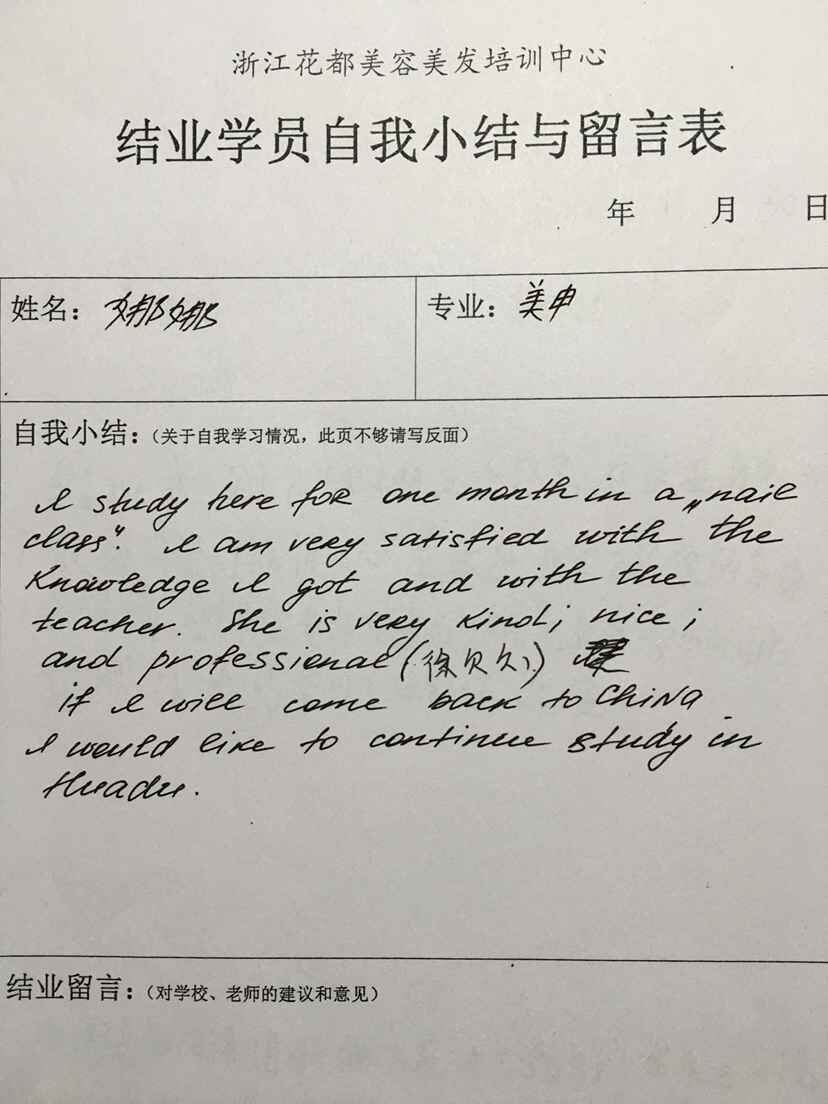 浙江花都美容美发培训中心
结业学员自我小结与留言表
年 月 日
姓名：娜娜
专业：美甲
自我小结：（关于自我学习情况，此页不够请写反面）
I study here for one month in a „nail
class“. I am very satisfied with the
knowledge I got and with the
teacher. She is very kind; nice;
and professional (徐贝)
if I will come back to China
I would like to continue study in
Huadu.
结业留言：（对学校、老师的建议和意见）